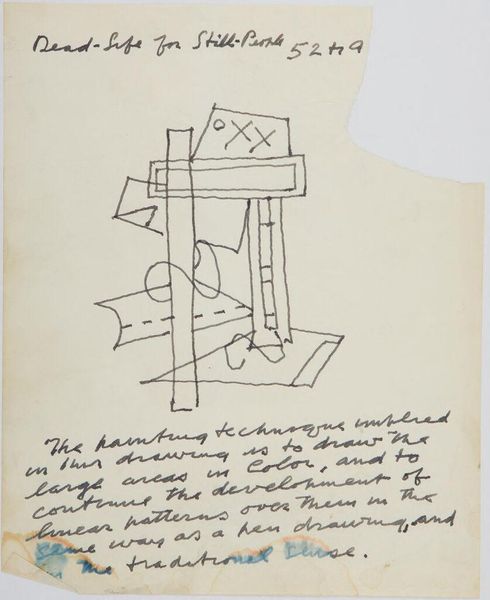 Dead-Life for Still-People 52 to 9
OXX
The painting technique implied
in this drawing is to draw the
large areas in color, and to
continue the development of
linear patterns over them in the
same way as a pen drawing, and
in the traditional sense.